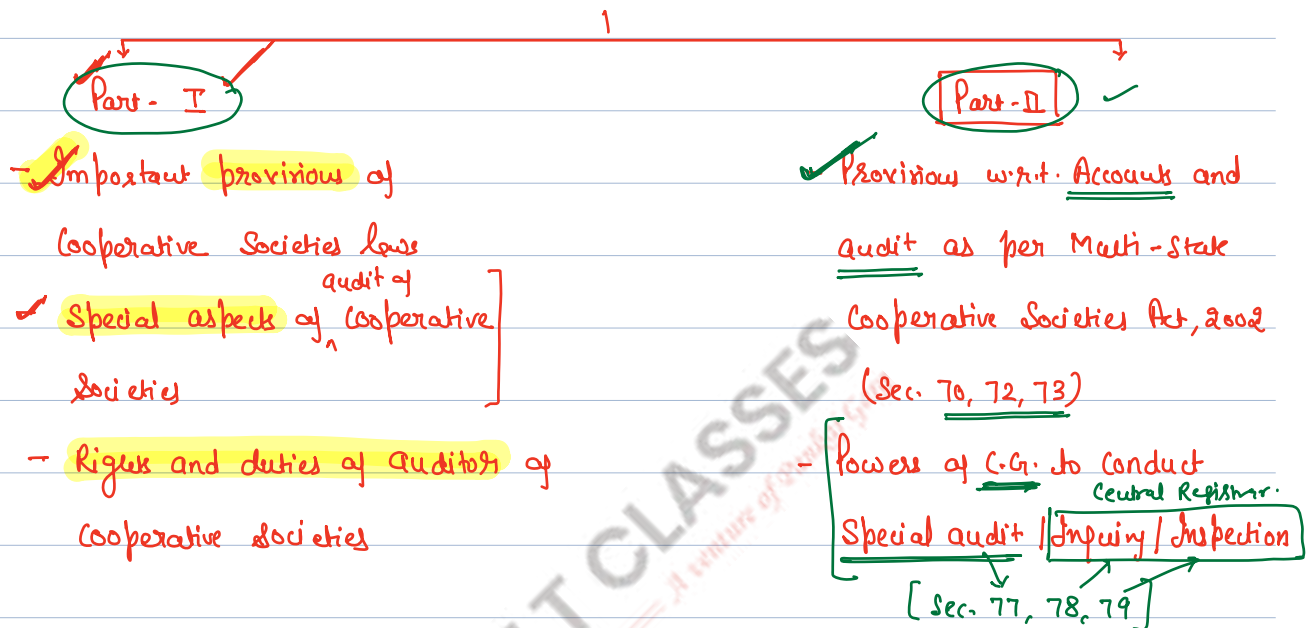 Part - I
- Important provisions of
Cooperative Societies laws
audit of
Special aspects of ^ Cooperative
Societies
- Rights and duties of auditor of
Cooperative Societies
Part - II
Provisions w.r.t. Accounts and
audit as per Multi-State
Cooperative Societies Act, 2002
(Sec. 70, 72, 73)
- Powers of C.G. to Conduct
Central Registrar.
Special audit / Inquiry / Inspection
[Sec. 77, 78, 79]
T CLASSES
A venture of